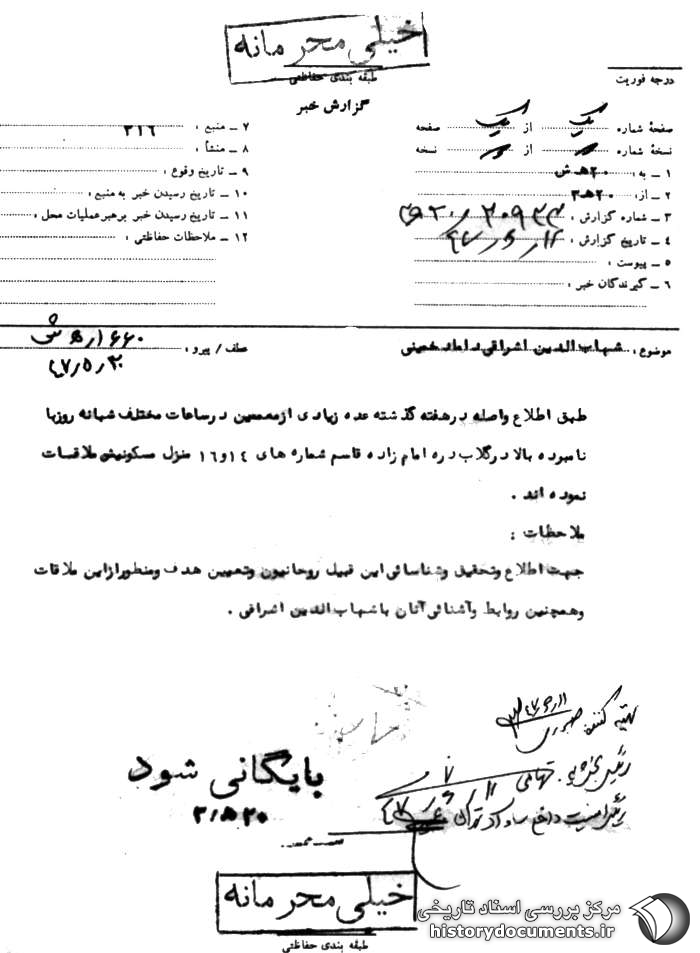 خیلی محرمانه
طبقه بندی حفاظتی
گزارش خبر
درجه فوریت
صفحهٔ شماره یک از یک صفحه
نسخهٔ شماره از نسخه
۱ ـ به : ۲۰ هـ ش
۲ ـ از : ۲۰ هـ ۳
۳ ـ شماره گزارش :
۴ ـ تاریخ گزارش :
۵ ـ پیوست :
۶ ـ گیرندگان خبر :
۷ ـ منبع : ۳۱۶
۸ ـ منشأ :
۹ ـ تاریخ وقوع :
۱۰ ـ تاریخ رسیدن خبر به منبع :
۱۱ ـ تاریخ رسیدن خبر برهبر عملیات محل :
۱۲ ـ ملاحظات حفاظتی :
موضوع : شهاب الدین اشراقی داماد خمینی
عطف / پیرو :
طبق اطلاع واصله در هفته گذشته عده زیادی از معممین در ساعات مختلف شبانه روز با
نامبرده بالا در گلاب دره امام زاده قاسم شماره های ۱۴ و ۱۶ منزل مسکونیش ملاقات
نموده اند .
ملاحظات :
جهت اطلاع و تحقیق و شناسائی این قبیل روحانیون و تعیین هدف و منظور از این ملاقات
و همچنین روابط و آشنائی آنان با شهاب الدین اشراقی .
تهیه کننده
بایگانی شود
خیلی محرمانه
طبقه بندی حفاظتی
مرکز بررسی اسناد تاریخی
historydocuments.ir